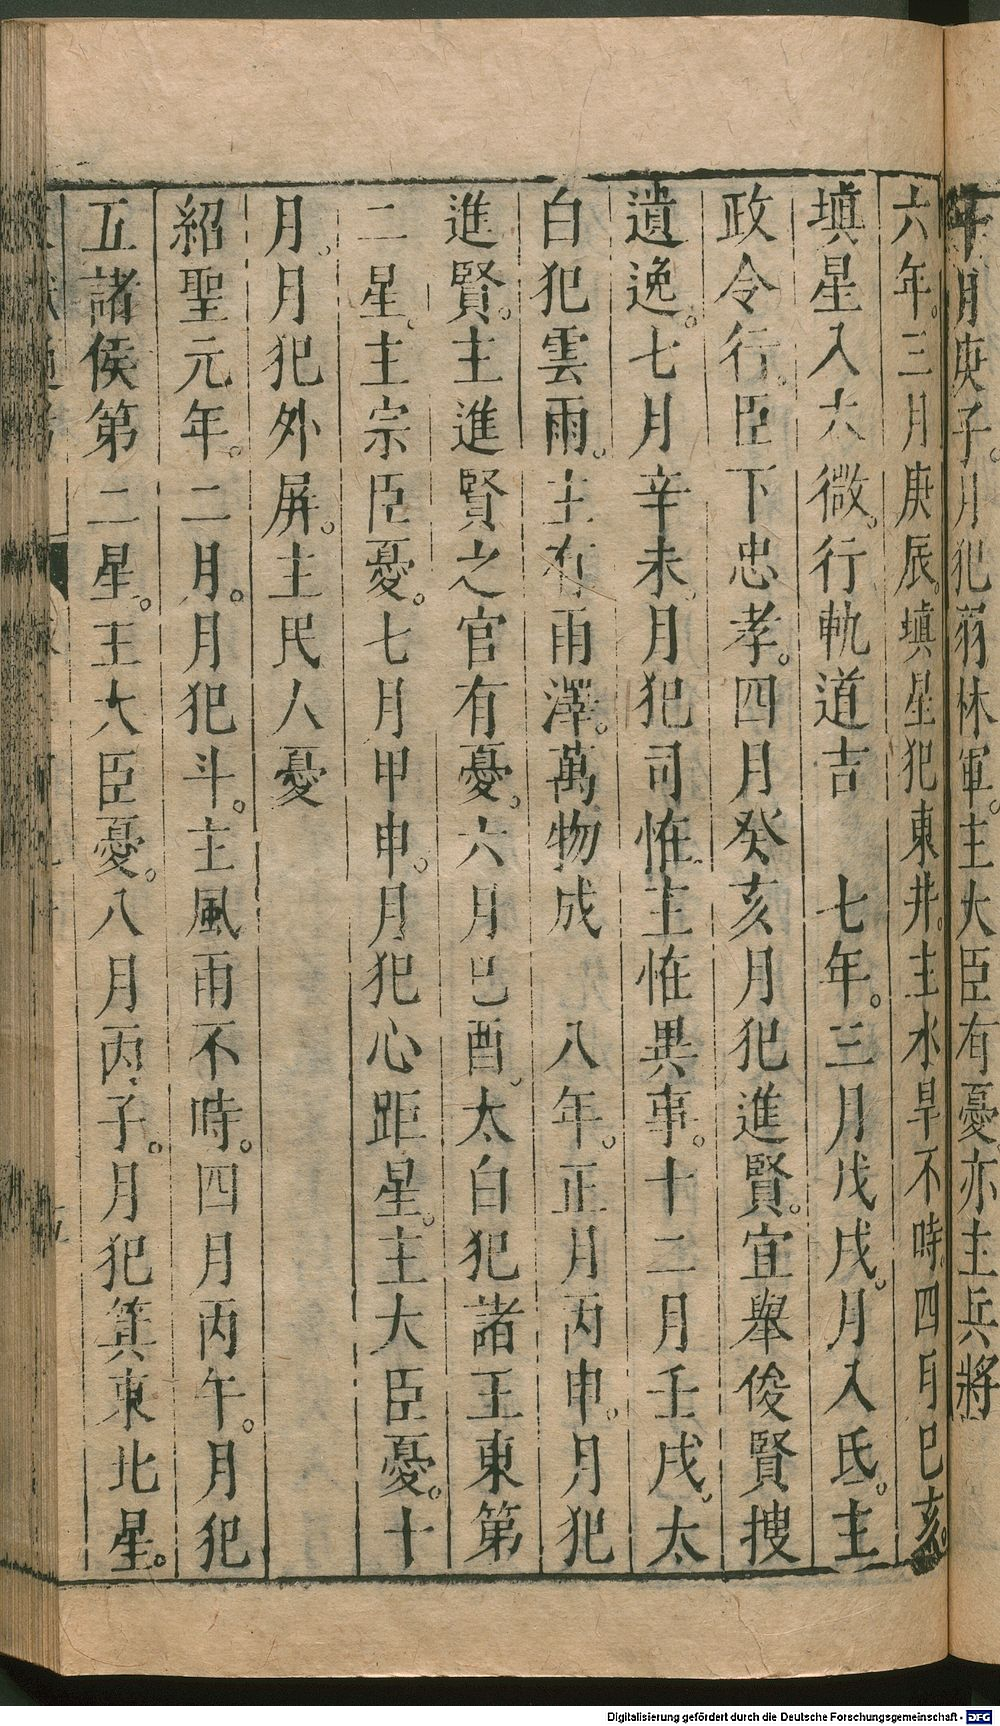 年月庚子。月犯羽林軍。主大臣有憂。亦主兵將
六年。三月庚辰。填星犯東井。主水旱不時。四月己亥。
填星入太微。行軌道吉　七年。三月戊戌。月入氐。主
政令行。臣下忠孝。四月癸亥月犯進賢。宜舉俊賢搜
遺逸。七月辛未。月犯司恠。主恠異事。十二月壬戌。太
白犯雲雨。主有雨澤。萬物成　八年。正月丙申。月犯
進賢。主進賢之官有憂。六月己酉。太白犯諸王東第
二星。主宗臣憂。七月甲申。月犯心距星。主大臣憂。十
月。月犯外屏。主民人憂
紹聖元年。二月。月犯斗。主風雨不時。四月丙午。月犯
五諸侯第二星。主大臣憂。八月丙子。月犯箕東北星。
Digitalisierung gefördert durch die Deutsche Forschungsgemeinschaft - DFG